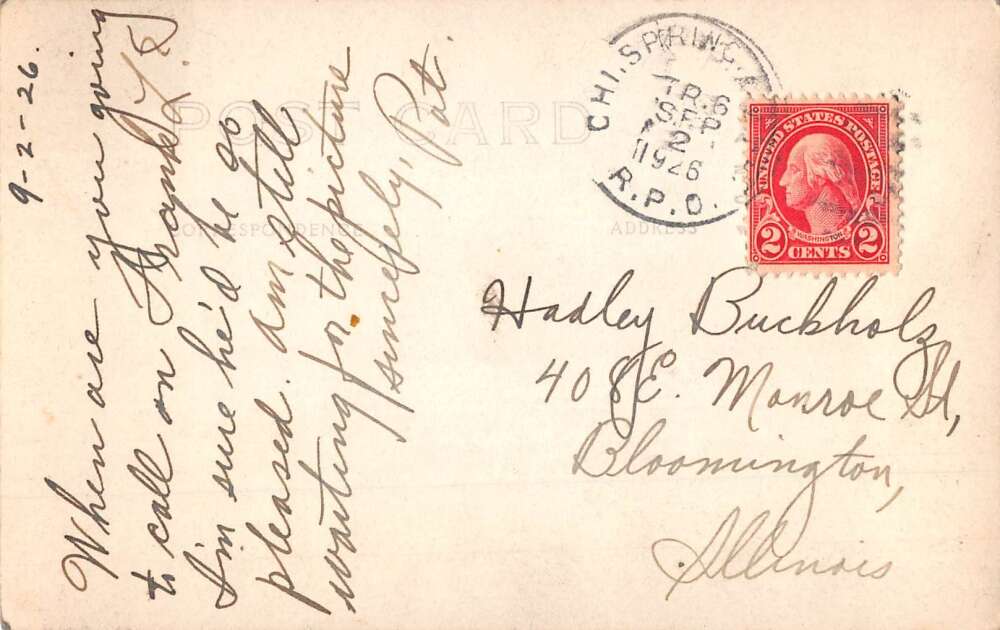 9-2-26.
When are you going
to call on Frank L.?
I'm sure he'd be so
pleased. Am still
waiting for the picture
Sincerely, Pat.
POST CARD
CORRESPONDENCE
ADDRESS
CHI. SPRING. &
TR. 6
SEP
2
1926
R.P.O.
UNITED STATES POSTAGE
WASHINGTON
2 CENTS 2
Hadley Buckholz
408 E. Monroe St,
Bloomington,
Illinois